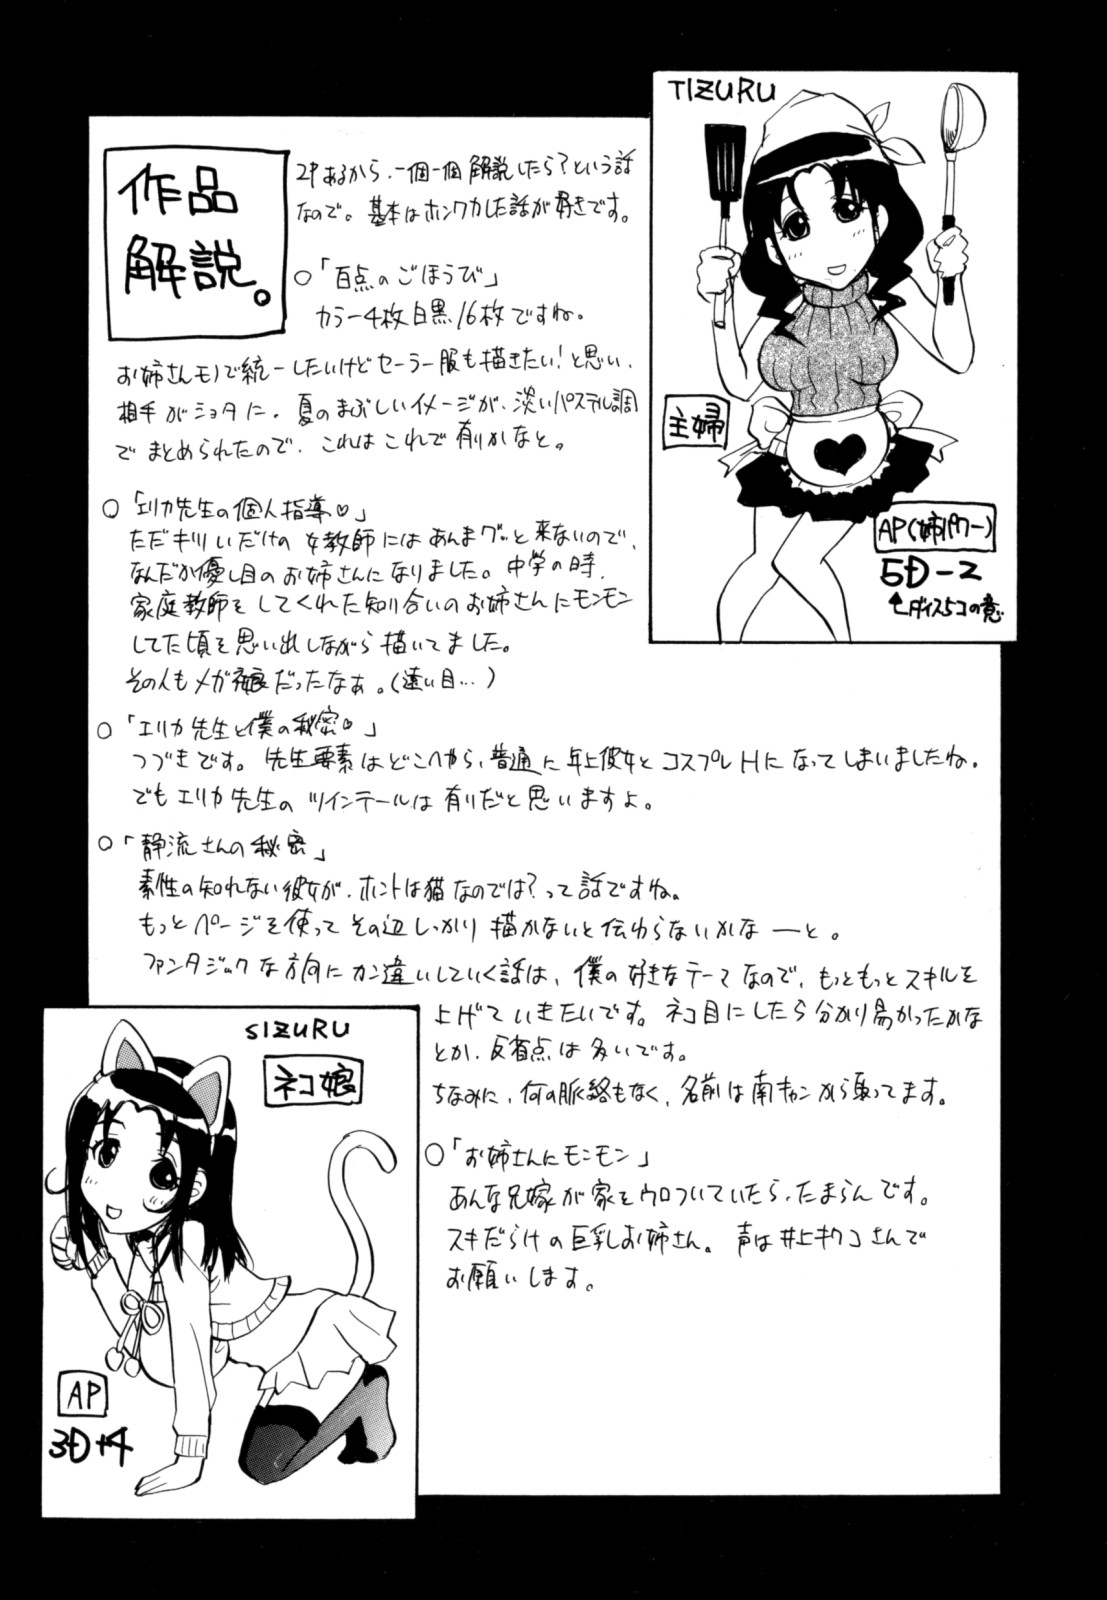 作品
解説。
2Pあるから、一個一個解説したら？という話
なので。基本はホンワカした話が好きです。
○「百点のごほうび」
カラー4枚白黒16枚ですね。
お姉さんモノで統一したいけどセーラー服も描きたい！と思い、
相手がショタに。夏のまぶしいイメージが、淡いパステル調
でまとめられたので、これはこれで有りかなと。
○「エリカ先生の個人指導♡」
ただキツいだけの女教師にはあんまグッと来ないので、
なんだか優し目のお姉さんになりました。中学の時、
家庭教師をしてくれた知り合いのお姉さんにモンモン
してた頃を思い出しながら描いてました。
その人もメガネ娘だったなぁ。(遠い目…)
○「エリカ先生と僕の秘密♡」
つづきです。先生要素はどこへやら、普通に年上彼女とコスプレHになってしまいましたね。
でもエリカ先生のツインテールは有りだと思いますよ。
○「静流さんの秘密」
素性の知れない彼女が、ホントは猫なのでは？って話ですね。
もっとページを使ってその辺しっかり描かないと伝わらないかなーと。
ファンタジックな方向にカン違いしていく話は、僕の好きなテーマなので、もっともっとスキルを
上げていきたいです。ネコ目にしたら分かり易かったかな
とか、反省点は多いです。
ちなみに、何の脈絡もなく、名前は南キャンから取ってます。
○「お姉さんにモンモン」
あんな兄嫁が家をウロついていたら、たまらんです。
スキだらけの巨乳お姉さん。声は井上キクコさんで
お願いします。
TIZURU
主婦
AP(姉パワー)
5D-2
↑ダイス5コの意
SIZURU
ネコ娘
AP
3D+4